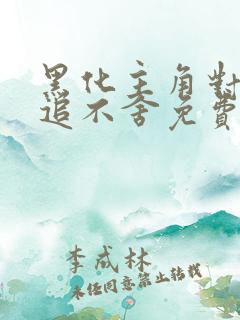 黑化主角對
追不舍免費
李成林
未經同意禁止轉載